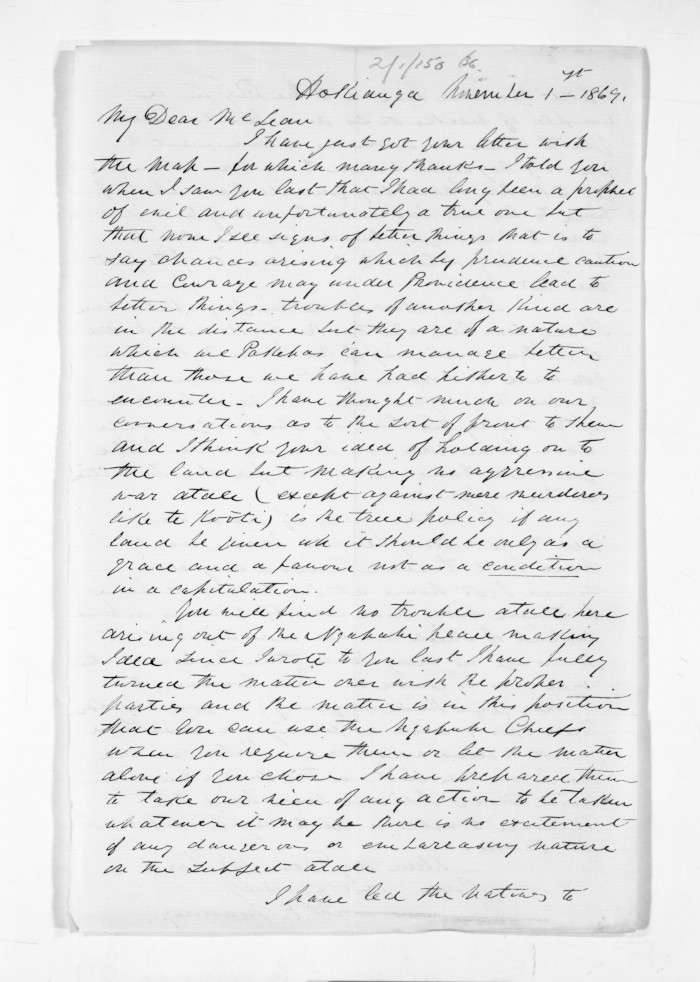 2/1/150
Hokianga November 1st – 1869.
My Dear McLean
I have just got your letter with
the Map – for which many thanks – I told you
when I saw you last that I had long been a prophet
of evil and unfortunately a true one but
that now I see signs of better things that is to
say chances arising which by prudence caution
and courage may under Providence lead to
better things – troubles of another kind are
in the distance but they are of a nature
which we Pakehas can manage better
than those we have had hitherto to
encounter – I have thought much on our
conversations as to the sort of front to shew
and I think your idea of holding on to
the land but making no aggressive
war atall (except against mere murderers
like te Kooti) is the true policy if any
land be given up it should be only as a
grace and a favour not as a condition
in a capitulation.
You will find no trouble atall here
arising out of the Ngapuhi peace making
Idea since I wrote to you last I have fully
turned the matter over with the proper
parties and the matter is in this position
that You can use the Ngapuhi Chiefs
when you require them or let the matter
alone if you chose I have prepared them
to take our view of any action to be taken
whatever it may be there is no excitement
of any dangerous or embarrasing nature
on the subject atall
I have led the natives to